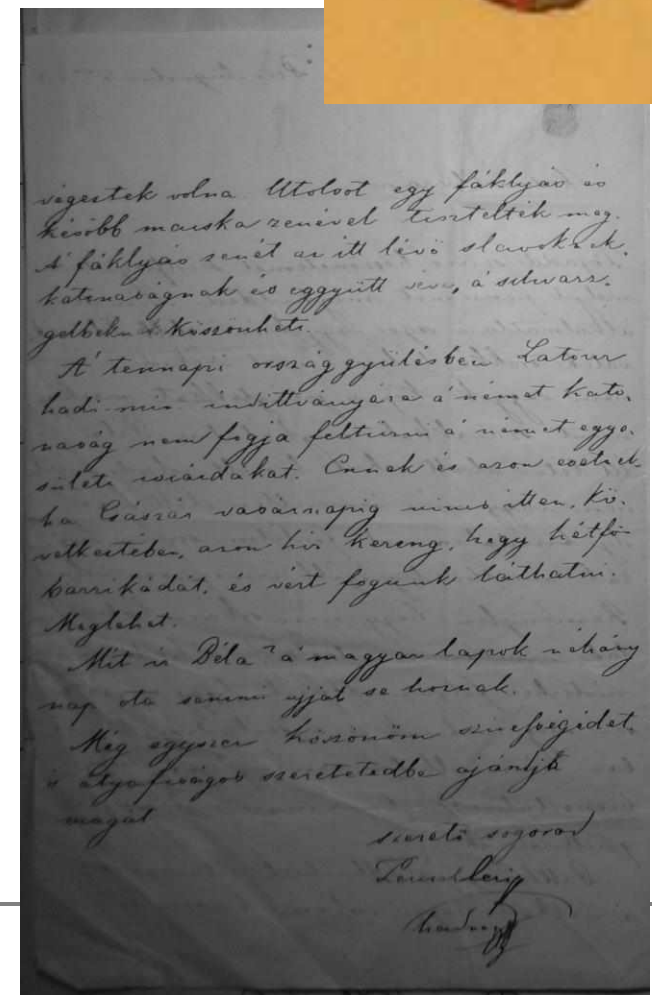 végeztek volna. Utolsót egy fáklyás és
később macska zenével tisztelték meg.
A' fáklyás zenét az itt lévő slavoknak,
katonaságnak és eggyütt véve, a' schwarz-
gelbeknek köszönheti.
A' tennapi országgyülésben Latour
hadi min indittványára a' német kato-
naság nem fogja feltűzni a' német egye-
sületi
ha Császár vasárnapig nincs itten, kö-
vetkeztében, azon hir kereng, hogy hétfőn
barrikádát, és vért fogunk láthatni.
Meglehet.
Mit ir Béla? a' magyar lapok néhány
nap óta semmi ujját se hoznak.
Még egyszer köszönöm szivességidet,
's atyafiságos szeretetedbe ajánlja
magát
szerető sogorod